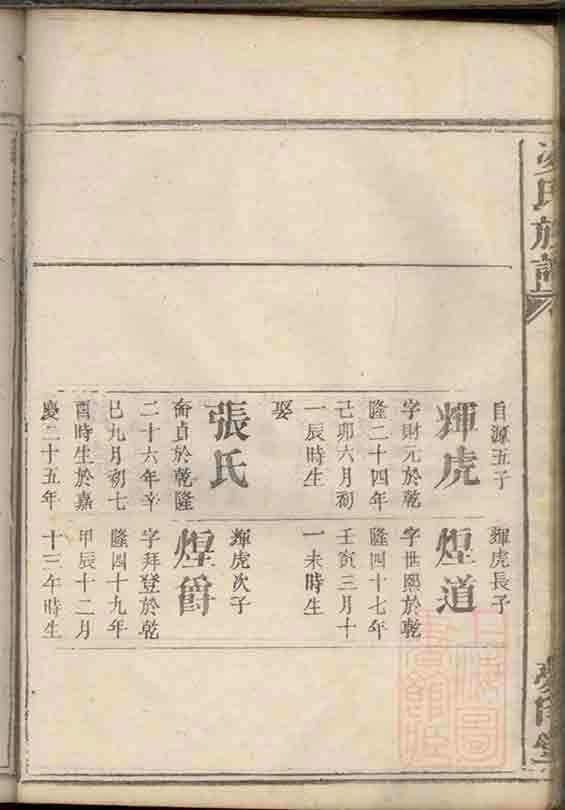 氏族譜
自源五子
輝虎
字財元於乾
隆二十四年
己卯六月初
一辰時生
娶
張氏
貞於乾隆
二十六年辛
巳九月初七
酉時生於嘉
慶二十五年
輝虎長子
煌道
字世熙於乾
隆四十七年
壬寅三月十
一未時生
輝虎次子
煌爵
字拜登於乾
隆四十九年
甲辰十二月
十三午時生
上海圖
書館藏